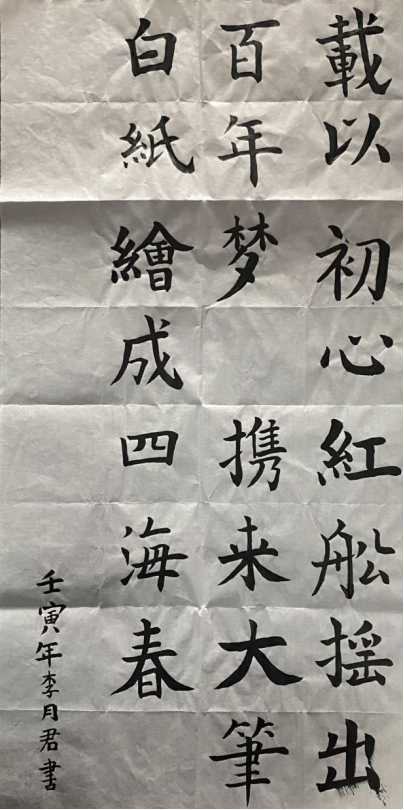 載以初心紅船摇出
百年梦携来大筆
白紙繪成四海春
壬寅年李月君書